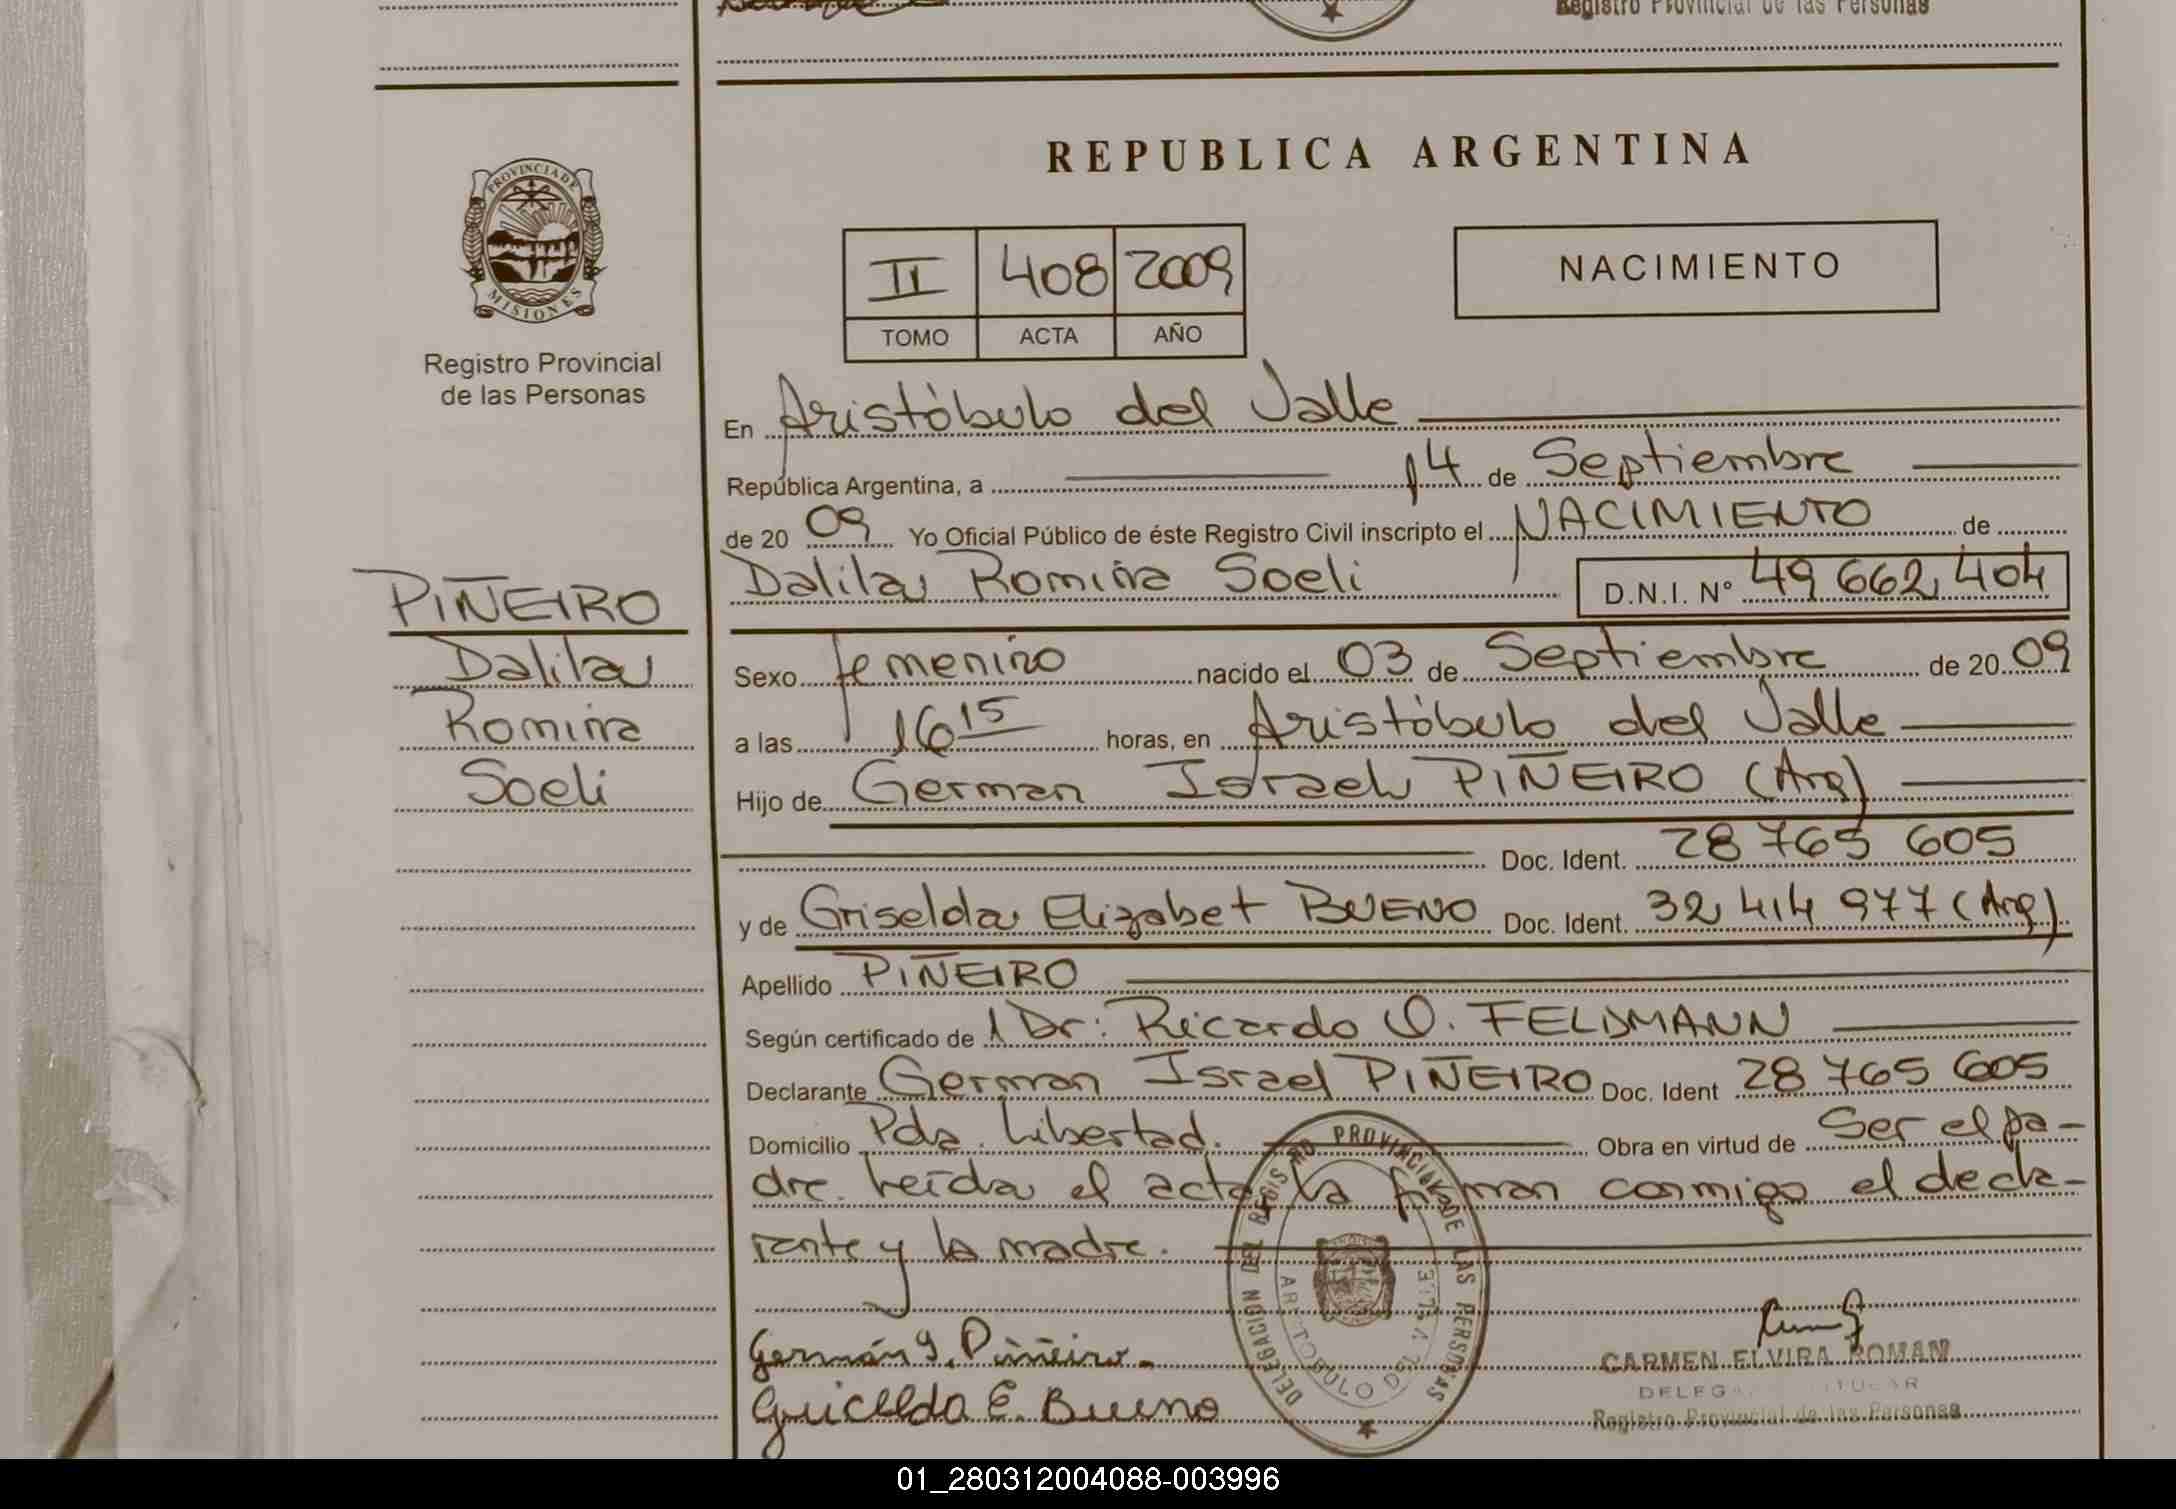 Registro Provincial de las Personas
PROVINCIA DE
MISIONES
Registro Provincial
de las Personas
PIÑEIRO
Dalila
Romina
Soeli
REPUBLICA ARGENTINA
II 408 2009
TOMO ACTA AÑO
NACIMIENTO
En Aristóbulo del Valle
República Argentina, a 14 de Septiembre
de 20 09 Yo Oficial Público de éste Registro Civil inscripto el NACIMIENTO de
Dalila Romina Soeli D.N.I. Nº 49 662 404
Sexo femenino nacido el 03 de Septiembre de 20 09
a las 16 15 horas, en Aristóbulo del Valle
Hijo de German Israel PIÑEIRO (Arg)
Doc. Ident. 28 765 605
y de Griselda Elizabet BUENO Doc. Ident. 32 414 977 (Arg)
Apellido PIÑEIRO
Según certificado de Dr: Ricardo O. FELDMANN
Declarante German Israel PIÑEIRO Doc. Ident 28 765 605
Domicilio Pda. Libertad. Obra en virtud de Ser el pa-
dre. Leída el acta la firman conmigo el decla-
rante y la madre.
DELEGACION DEL REGISTRO PROVINCIAL DE LAS PERSONAS
ARISTOBULO DEL VALLE
Germán I. Piñeiro.
Gricelda E. Bueno
CARMEN ELVIRA ROMAN
DELEGADA TITULAR
Registro Provincial de las Personas
01_280312004088-003996